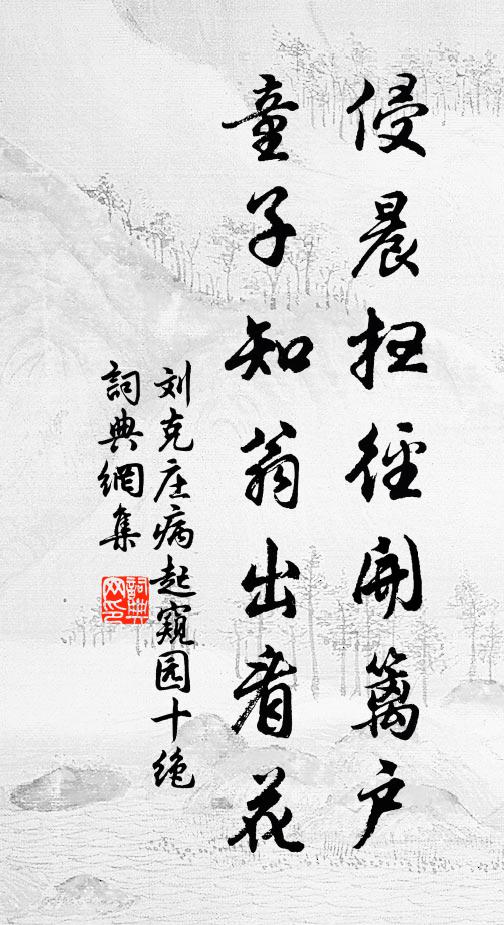 侵晨扫径开篱户
童子知翁出看花
刘克庄病起窥园十绝
詞典網集
詞典網印